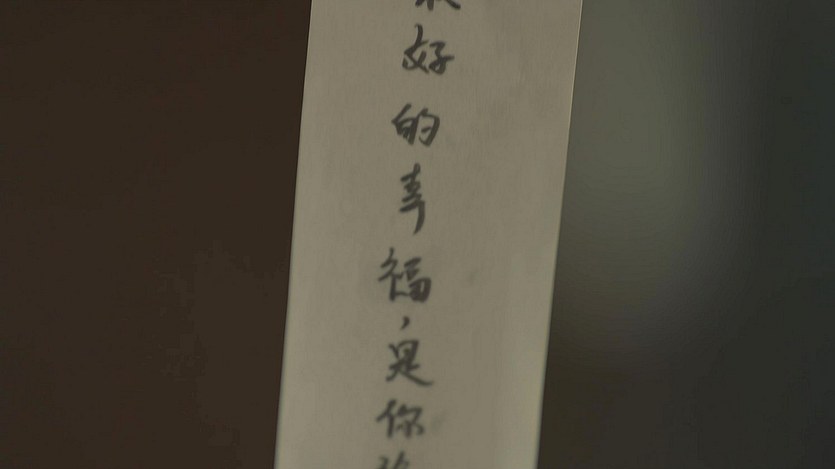 好的幸福，是你